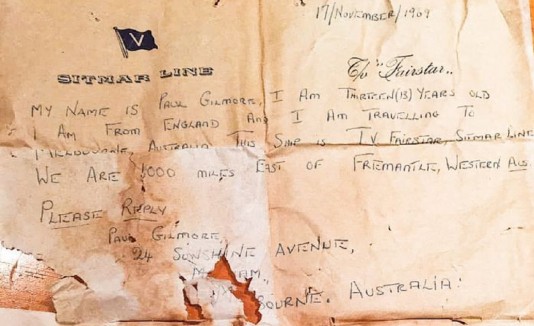 17/November/1969
V
SITMAR LINE
T/V "Fairstar"
MY NAME IS PAUL GILMORE, I AM THIRTEEN(13) YEARS OLD
I AM FROM ENGLAND AND I AM TRAVELLING TO
MELBOURNE AUSTRALIA THIS SHIP IS T.V FAIRSTAR, SITMAR LINE
WE ARE 1000 MILES EAST OF FREMANTLE, WESTERN AUS
PLEASE REPLY
PAUL GILMORE,
24 SUNSHINE AVENUE,
M AM,
BOURNE. AUSTRALIA.